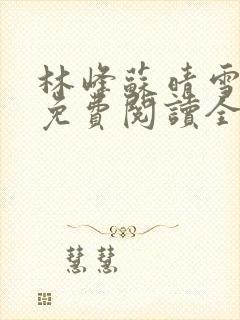 林峰蘇晴雪
免費閱讀全
慧慧